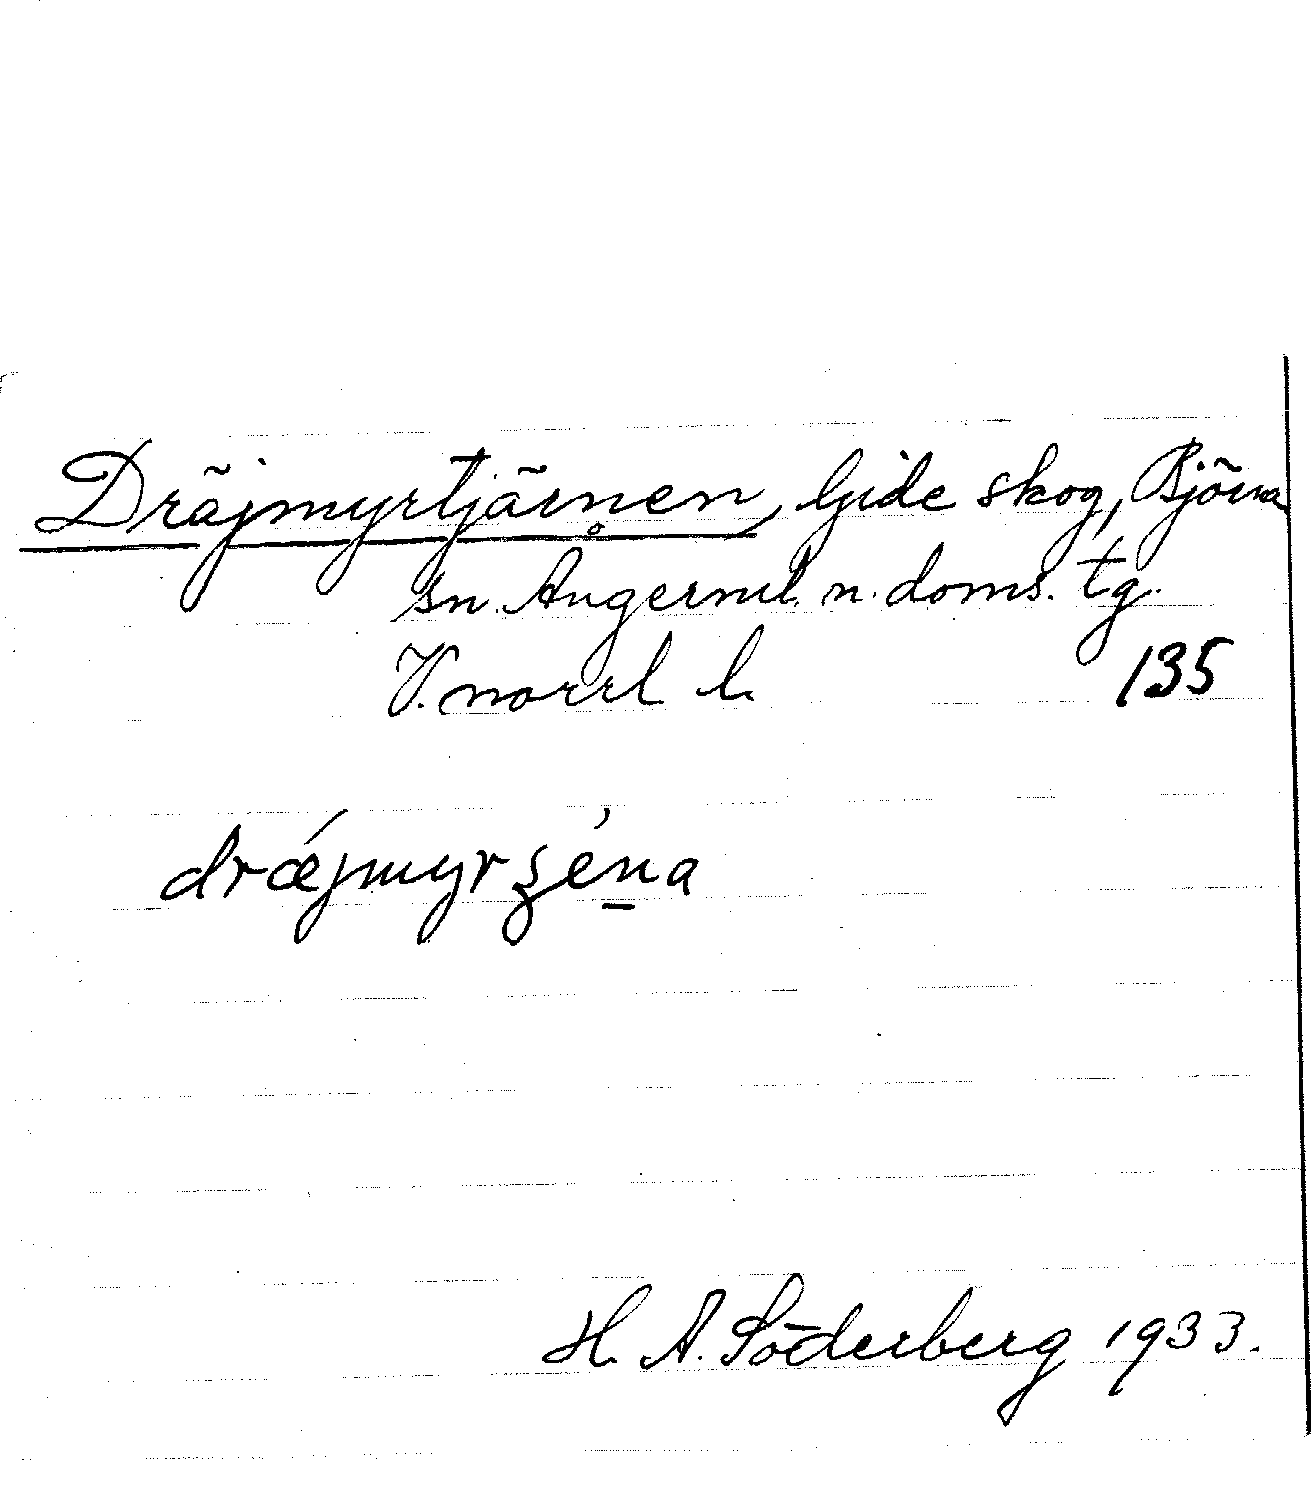 Dräjmyrtjärnen, Gide skog, Björna
sn. Ångerml. n. doms. tg.
V. norrl l. 135
dræ´jmyrʂén̲a
H. A. Söderberg 1933.